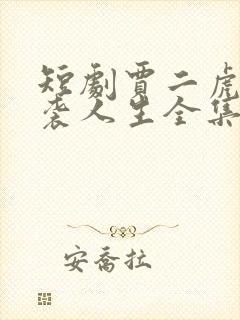 短劇賈二虎
袭人生全集
安喬拉